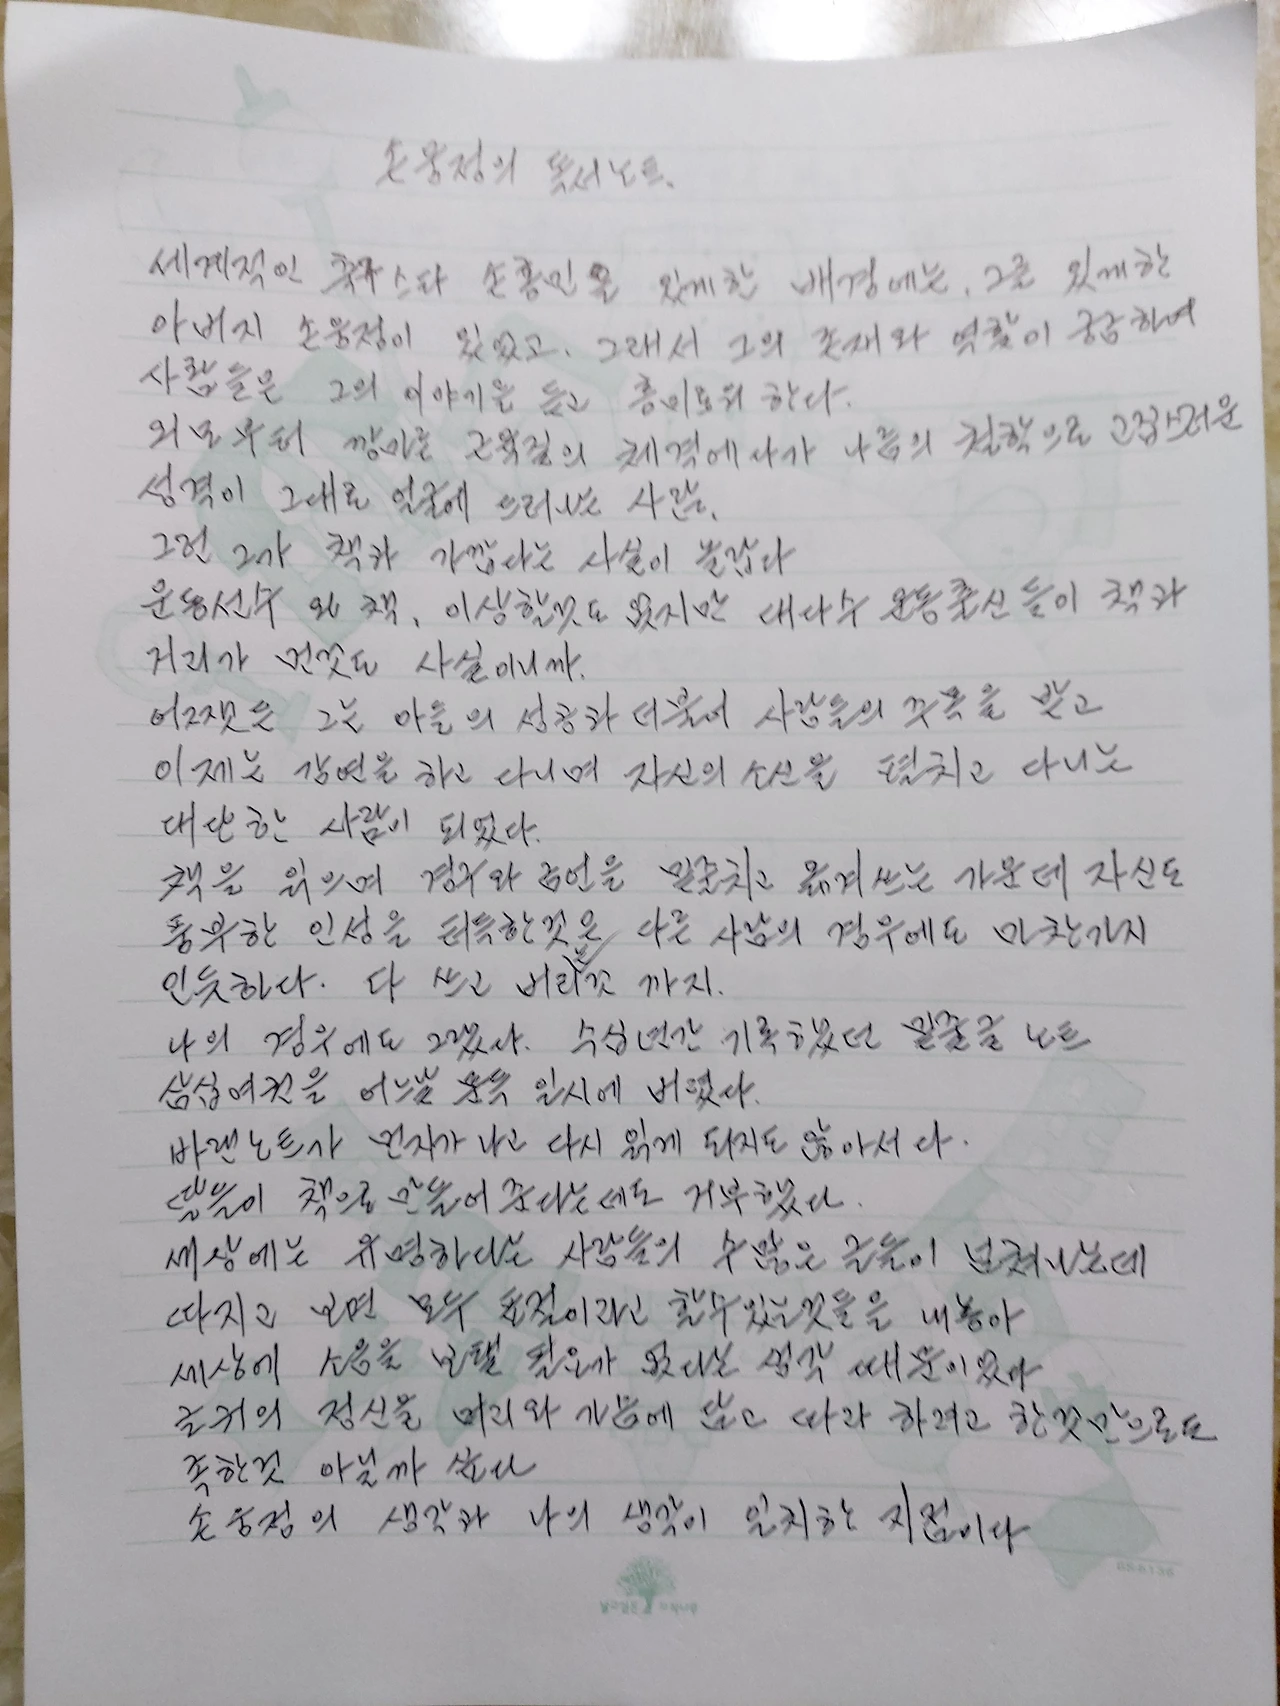 손웅정의 독서노트.
세계적인 축구스타 손흥민을 있게한 배경에는, 그를 있게한
아버지 손웅정이 있었고, 그래서 그의 존재와 역할이 궁금하여
사람들은 그의 이야기를 듣고 흥미로워 한다.
외모부터 깡마른 근육질의 체격에다가 나름의 철학으로 고집스러운
성격이 그대로 얼굴에 드러나는 사람.
그런 그가 책과 가깝다는 사실이 놀랍다
운동선수 와 책, 이상할것도 없지만 대다수 운동출신들이 책과
거리가 먼것도 사실이니까.
어쨋든 그는 아들의 성공과 더불어 사람들의 주목을 받고
이제는 강연을 하고 다니며 자신의 소신을 펼치고 다니는
대단한 사람이 되었다.
책을 읽으며 경구와 금언을 밑줄치고 옮겨쓰는 가운데 자신도
풍부한 인성을 터득한것은 다른 사람의 경우에도 마찬가지
인듯하다. 다 쓰고 버리는것 까지.
나의 경우에도 그랬다. 수십년간 기록했던 밑줄글 노트
삼십여권을 어느날 문득 일시에 버렸다.
바랜노트가 먼지가 나고 다시 읽게 되지도 않아서다.
딸들이 책으로 만들어 준다는데도 거부했다.
세상에는 유명하다는 사람들의 수많은 글들이 넘쳐나는데
따지고 보면 모두 표절이라고 할수있는것들을 내놓아
세상에 소음을 보탤 필요가 없다는 생각 때문이었다
글귀의 정신을 머리와 가슴에 담고 따라 하려고 한것만으로도
족한것 아닐까 싶다
손웅정의 생각과 나의 생각이 일치한 지점이다